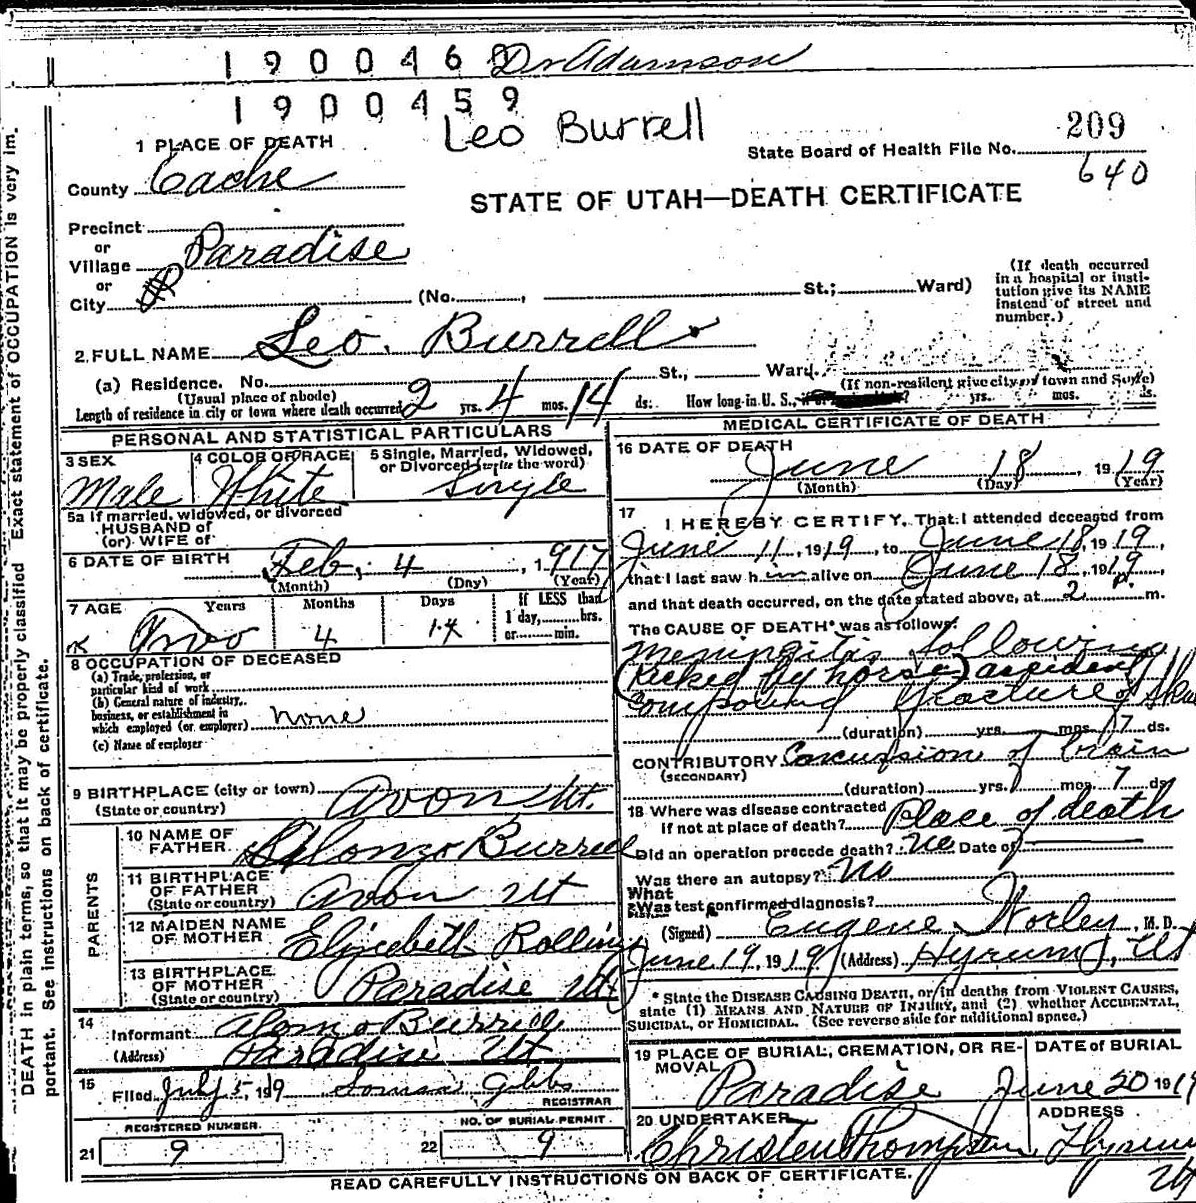 190046 Dr Adamson
1900459
Leo Burrell
209
State Board of Health File No.
640
1 PLACE OF DEATH
County Cache
STATE OF UTAH—DEATH CERTIFICATE
Precinct
or
Village Paradise
or
City (No. , St.; Ward)
(If death occurred in a hospital or insti-
tution give its NAME
instead of street and
number.)
2. FULL NAME Leo. Burrell
(a) Residence. No. St., Ward.
(Usual place of abode)
(If non-resident give city or town and State)
Length of residence in city or town where death occurred 2 yrs. 4 mos. 14 ds. How long in U. S., yrs. mos. ds.
PERSONAL AND STATISTICAL PARTICULARS
3 SEX
Male
4 COLOR OR RACE
White
5 Single, Married, Widowed,
or Divorced (write the word)
Single
5a If married, widowed, or divorced
HUSBAND of
(or) WIFE of
6 DATE OF BIRTH Feb. 4, 1917
(Month) (Day) (Year)
7 AGE Years Months Days If LESS than
1 day, hrs.
or min.
Two 4 14
8 OCCUPATION OF DECEASED
(a) Trade, profession, or
particular kind of work
(b) General nature of industry,
business, or establishment in
which employed (or employer) none
(c) Name of employer
9 BIRTHPLACE (city or town) Avon Ut.
(State or country)
PARENTS
10 NAME OF
FATHER Alonzo Burrell
11 BIRTHPLACE
OF FATHER Avon Ut
(State or country)
12 MAIDEN NAME
OF MOTHER Elizabeth Rollins
13 BIRTHPLACE
OF MOTHER Paradise Ut
(State or country)
14
Informant Alonzo Burrell
(Address) Paradise Ut
15
Filed July 5, 1919 Gibbs
REGISTRAR
REGISTERED NUMBER
21 9
NO. OF BURIAL PERMIT
22 9
MEDICAL CERTIFICATE OF DEATH
16 DATE OF DEATH
June 18, 1919
(Month) (Day) (Year)
17
I HEREBY CERTIFY, That I attended deceased from
June 11, 1919, to June 18, 1919,
that I last saw him alive on June 18, 1919
and that death occurred, on the date stated above, at 2 p. m.
The CAUSE OF DEATH* was as follows:
Meningitis following
(kicked by horse) accident
compound fracture of Skull
(duration) yrs. mos. 7 ds.
CONTRIBUTORY Concussion of brain
(SECONDARY)
(duration) yrs. mos. 7 ds.
18 Where was disease contracted
If not at place of death? Place of death
Did an operation precede death? No Date of
Was there an autopsy? No
What
Was test confirmed diagnosis?
(Signed) Eugene Worley, M. D.
June 19, 1919 (Address) Hyrum, Ut
* State the DISEASE CAUSING DEATH, or in deaths from VIOLENT CAUSES,
state (1) MEANS AND NATURE OF INJURY, and (2) whether ACCIDENTAL,
SUICIDAL, or HOMICIDAL. (See reverse side for additional space.)
19 PLACE OF BURIAL, CREMATION, OR RE-
MOVAL
Paradise
DATE of BURIAL
June 20 1919
20 UNDERTAKER
Christen Thompson
ADDRESS
Hyrum
Ut
READ CAREFULLY INSTRUCTIONS ON BACK OF CERTIFICATE.
DEATH in plain terms, so that it may be properly classified. Exact statement of OCCUPATION is very im-
portant. See instructions on back of certificate.